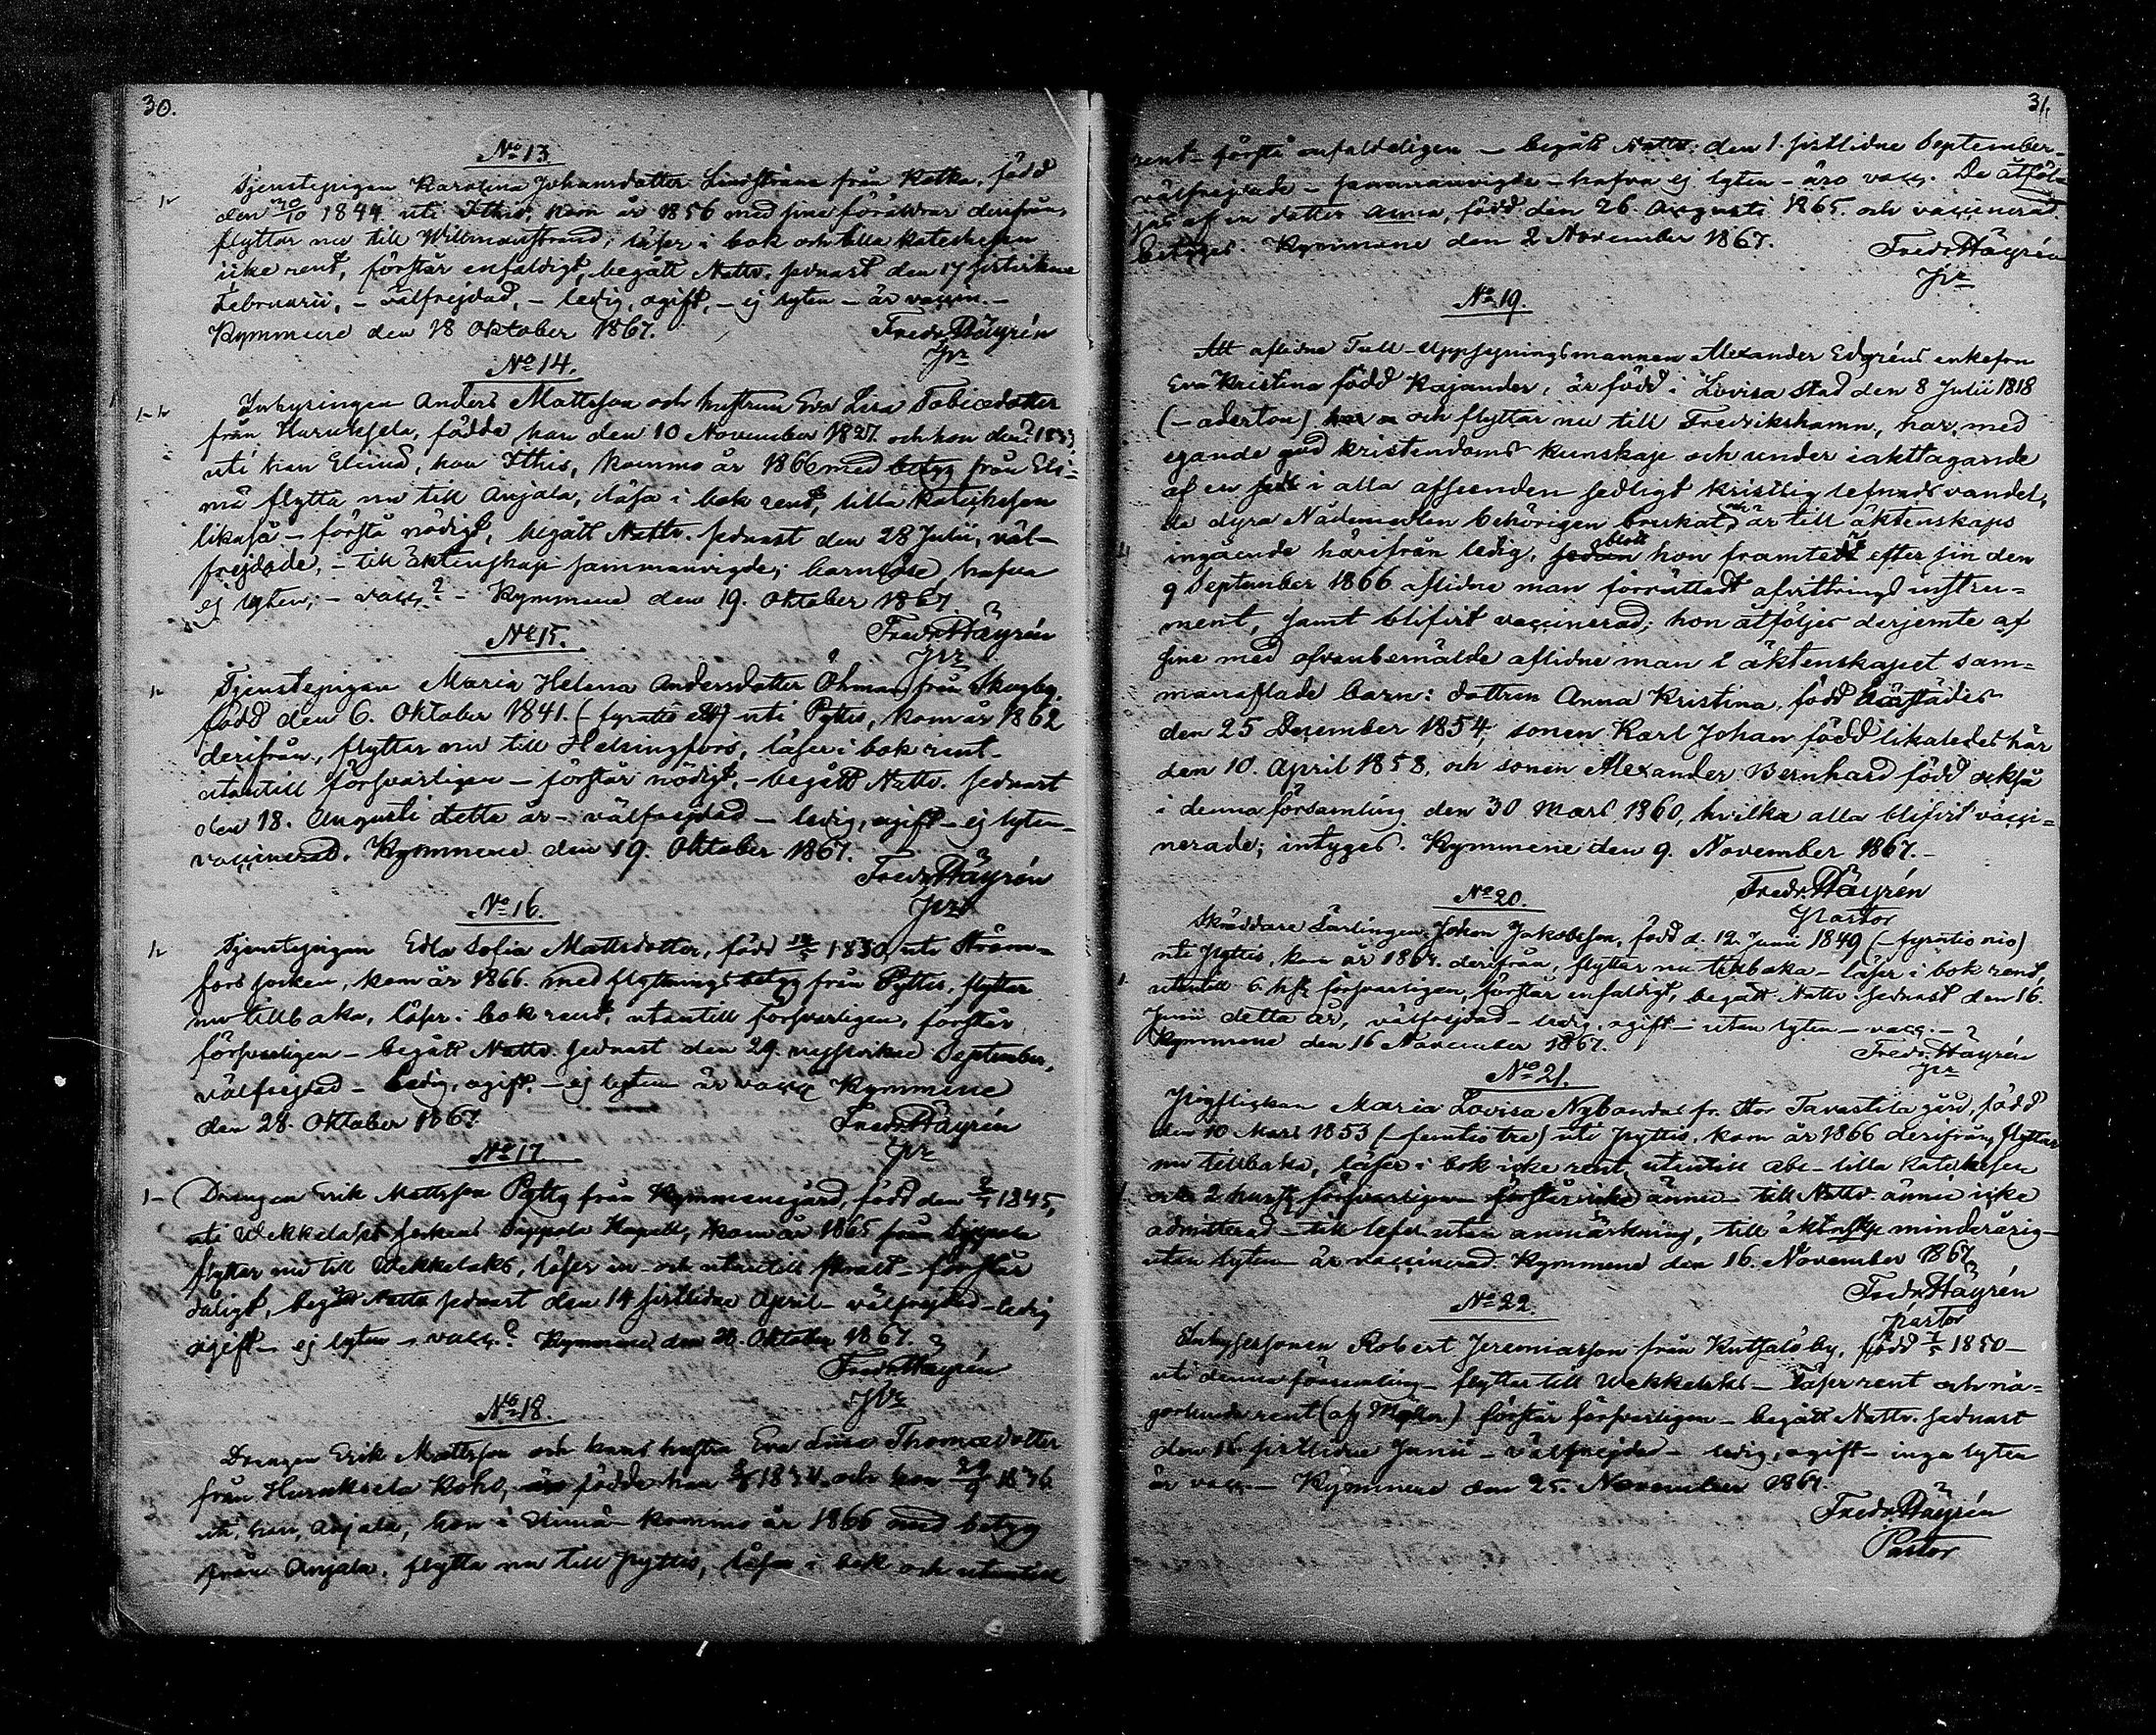 30.
No 13
Tjenstepigan Karolina Johansdotter Lindström från Kotka, född
den 30/10 1844 uti Ithis, kom år 1856 med sina föräldrar derifrån,
flyttar nu till Willmanstrand, läser i bok och lilla katechesen
icke rent, förstår enfaldigt, begått Nattv. sednast den 17 sistlidne
Februarii, - välfrejdad, - ledig, ogift, - ej lyten - är vaccin. -
Kymmene den 18 Oktober 1867.
Fredr. Häyrén
No 14.
Inhysingen Anders Mattsson och hustrun Eva Lisa Tobiædotter
från Huruksela, födda han den 10 November 1827 och hon den
uti han Elimä, hon Ithis, kommo år 1866 med betyg från Eli-
mä flytta nu till Anjala, läsa i bok rent, lilla Katechesen
likaså - förstå nödigt, begått Nattv. sednast den 28 Julii, väl-
frejdade, - till äktenskap sammanvigde; barnlöse, hafva
ej lyten; - vacc? - Kymmene den 19. Oktober 1867.
Fredr. Häyrén
No 15.
Tjenstepigan Maria Helena Andersdotter Öhman från Skogby.
född den 6. Oktober 1841. (fyratio ett) uti Pyttis, kom år 1862
derifrån, flyttar nu till Helsingfors, läser i bok rent -
utantill försvarligen - förstår nödigt, - begått Nattv. sednast
den 18. Augusti detta år - välfrejdad - ledig, ogift - ej lyten -
vaccinerad. Kymmene den 19. Oktober 1867.
Fredr. Häyrén
No 16.
Tjenstepigan Edla Sofia Mattsdotter, född 1830, uti Ström-
fors socken, kom år 1866. med flyttningsbetyg från Pyttis, flyttar
nu tillbaka, läser i bok rent, utantill försvarligen, förstår
försvarligen - begått Nattv. sednast den 29. September,
välfrejdad - ledig, ogift, - ej lyten är vacc Kymmene
den 28. Oktober 1867.
Fredr. Häyrén
No 17
Drengen Erik Mattsson Pytty från Kymmenegård, född den 1845,
uti Wekkelaks sockens Sippola Kapell, kom år 1865 från Sippola
flyttar nu till Wekkelaks, läser in och utantill svart - förstår
dåligt, begått Nattv sednast den 14 sistlidne April - välfrejdad - ledig
ogift - ej lyten - vacc.? Kymmene den 28. Oktober 1867.
Fredr. Häyrén
No 18.
Drengen Erik Mattsson och hans hustru Eva Lisa Thomædotter
från Huruksela födda han och hon
uti, han, Anjala, hon i Elimä - kommo år 1866 med betyg
från Anjala. flytta nu till Pyttis, läsa i bok och utantill
31.
rent - förstå enfaldeligen - begått Nattv. den 1. sistlidne September -
välfrejdade - sammanvigde - hafva ej lyten - äro vacc. De åtföl-
jas af en dotter Anna, född den 26 Augusti 1865. och vaccinerad
betyges. Kymmene den 2 November 1867.
Fredr. Häyrén
No 19.
Att aflidne Tull-Uppsyningsmannen Alexander Edgréns enkefru
Eva Kristina född Kajander, är född i Lovisa Stad den 8 Julii 1818
(- aderton) och flyttar nu till Fredrikshamn, har, med
egande god kristendoms kunskap och under iakttagande
af en i alla afseenden sedligt kristlig lefnads vandel,
de dyra Nådemedlen behörigen brukat, och är till äktenskaps
ingående härifrån ledig, blott hon framter efter sin den
9 September 1866 aflidne man förrättadt afvittrings instru-
ment, samt blifvit vaccinerad; hon åtföljes derjemte af
sine med ofvanbemälde aflidne man i äktenskapet sam-
manaflade barn: dottren Anna Kristina, född härstädes
den 25 December 1854, sonen Karl Johan född likaledes här
den 10. April 1858, och sonen Alexander Bernhard född också
i denna församling den 30 Mars 1860, hvilka alla blifvit vacci-
nerade; intyges. Kymmene den 9. November 1867. -
Fredr. Häyrén
Pastor
No 20.
Skräddare Lärlingen Johan Jakobsson, född d. 12. Junii 1849 (- fyratio nio)
uti Pyttis, kom år 1864. derifrån, flyttar nu tillbaka - läser i bok rent
utantill 6 hft försvarligen, förstår enfaldigt, begått Nattv. sednast den 16.
Junii detta år, välfrejdad - ledig, ogift - utan lyten - vacc. - ?
Kymmene den 16 November 1867.
Fredr. Häyrén
No 21.
Pigflickan Maria Lovisa Nybondas fr. Stor Tavastila gård, född
den 10 Mars 1853 (- femtio tre) uti Pyttis, kom år 1866 derifrån, flyttar
nu tillbaka, läser i bok icke rent, utantill abc - lilla katekesen
och 2 försvarligen förstår icke ännu - till Nattv. ännu icke
admitterad - till lefv. utan anmärkning, till äktensk. minderårig -
utan lyten - är vaccinerad. Kymmene den 16. November 1867
Fredr. Häyrén
Pastor
No 22.
Inhysessonen Robert Jeremiasson från Kutsalö by, född 1850 -
uti denna församling - flyttar till Wekkelaks - läser rent och nå-
gorlunda rent försstår försvarligen - begått Nattv. sednast
den 16. sistlidne Junii - välfrejdad - ledig, ogift - inga lyten
är vacc - Kymmene den 25. November 1867.
Fredr. Häyrén
Pastor